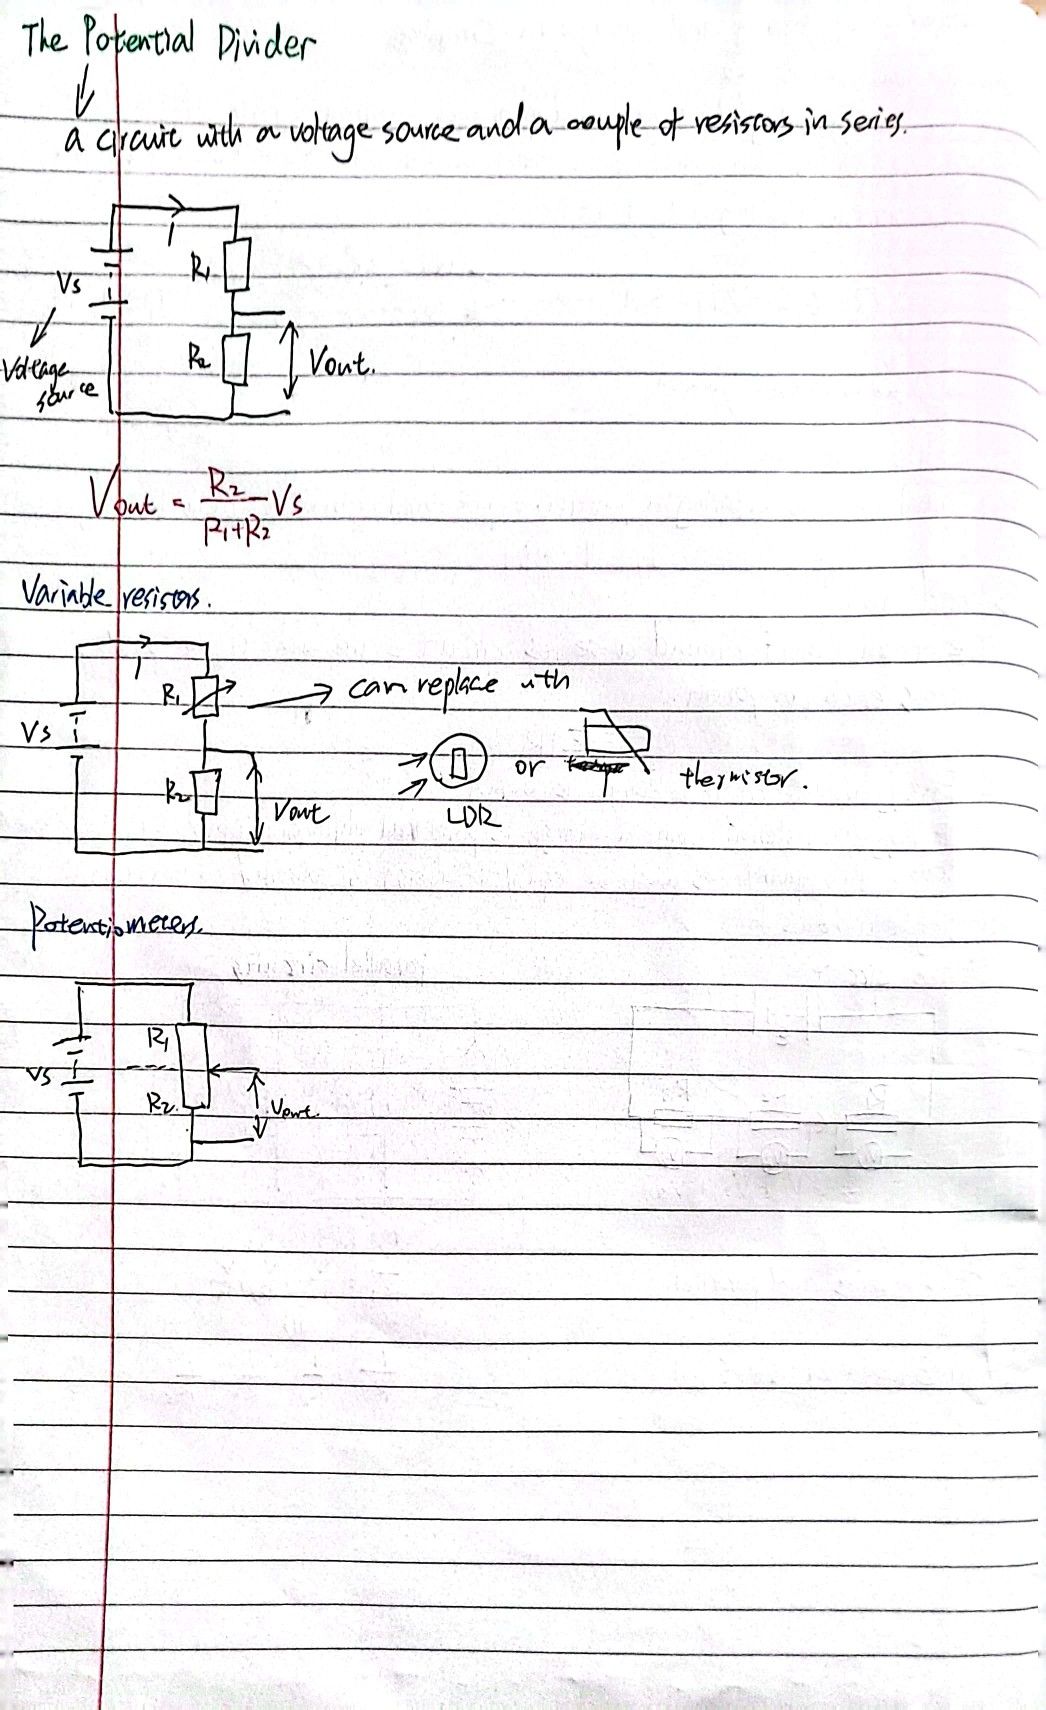 The Potential Divider
a circuit with a voltage source and a couple of resistors in series.
I
R1
Vs
R2
Vout.
Voltage
source
Vout = R2/R1+R2 Vs
Variable resistors.
I
R1
can replace with
Vs
or
thermistor.
R2
Vout
LDR
T
Potentiometers.
R1
Vs
R2
Vout.